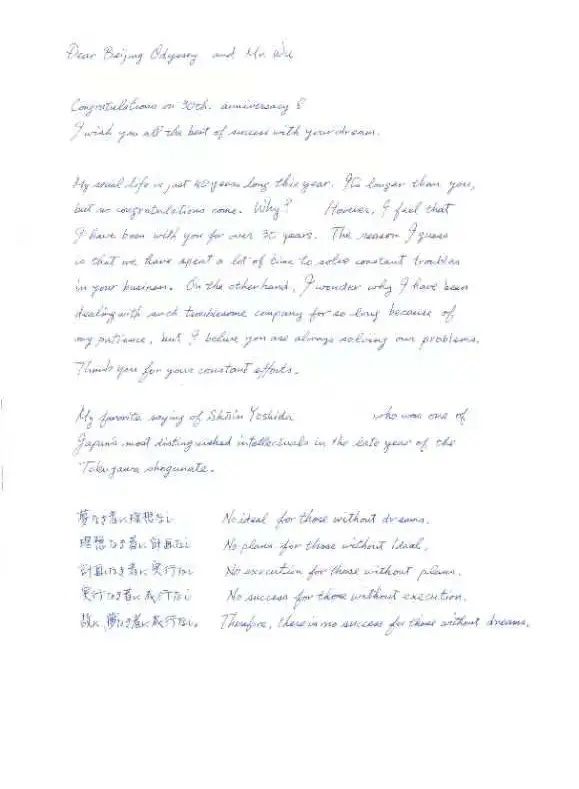 Dear Beijing Odyssey and Mr. Wu
Congratulations on 30th. anniversary !
I wish you all the best of success with your dream.
My social life is just 40 years long this year. It's longer than you,
but no congratulations come. Why? However, I feel that
I have been with you for over 30 years. The reason I guess
is that we have spent a lot of time to solve constant troubles
in your business. On the other hand, I wonder why I have been
dealing with such troublesome company for so long because of
my patience, but I believe you are always solving our problems.
Thank you for your constant efforts.
My favorite saying of Shoin Yoshida who was one of
Japan's most distinguished intellectuals in the late year of the
Tokugawa shogunate.
夢なき者に理想なし No ideal for those without dreams.
理想なき者に計画なし No plans for those without ideal.
計画なき者に実行なし No execution for those without plans.
実行なき者に成功なし No success for those without execution.
故に、夢なき者に成功なし。 Therefore, there is no success for those without dreams.